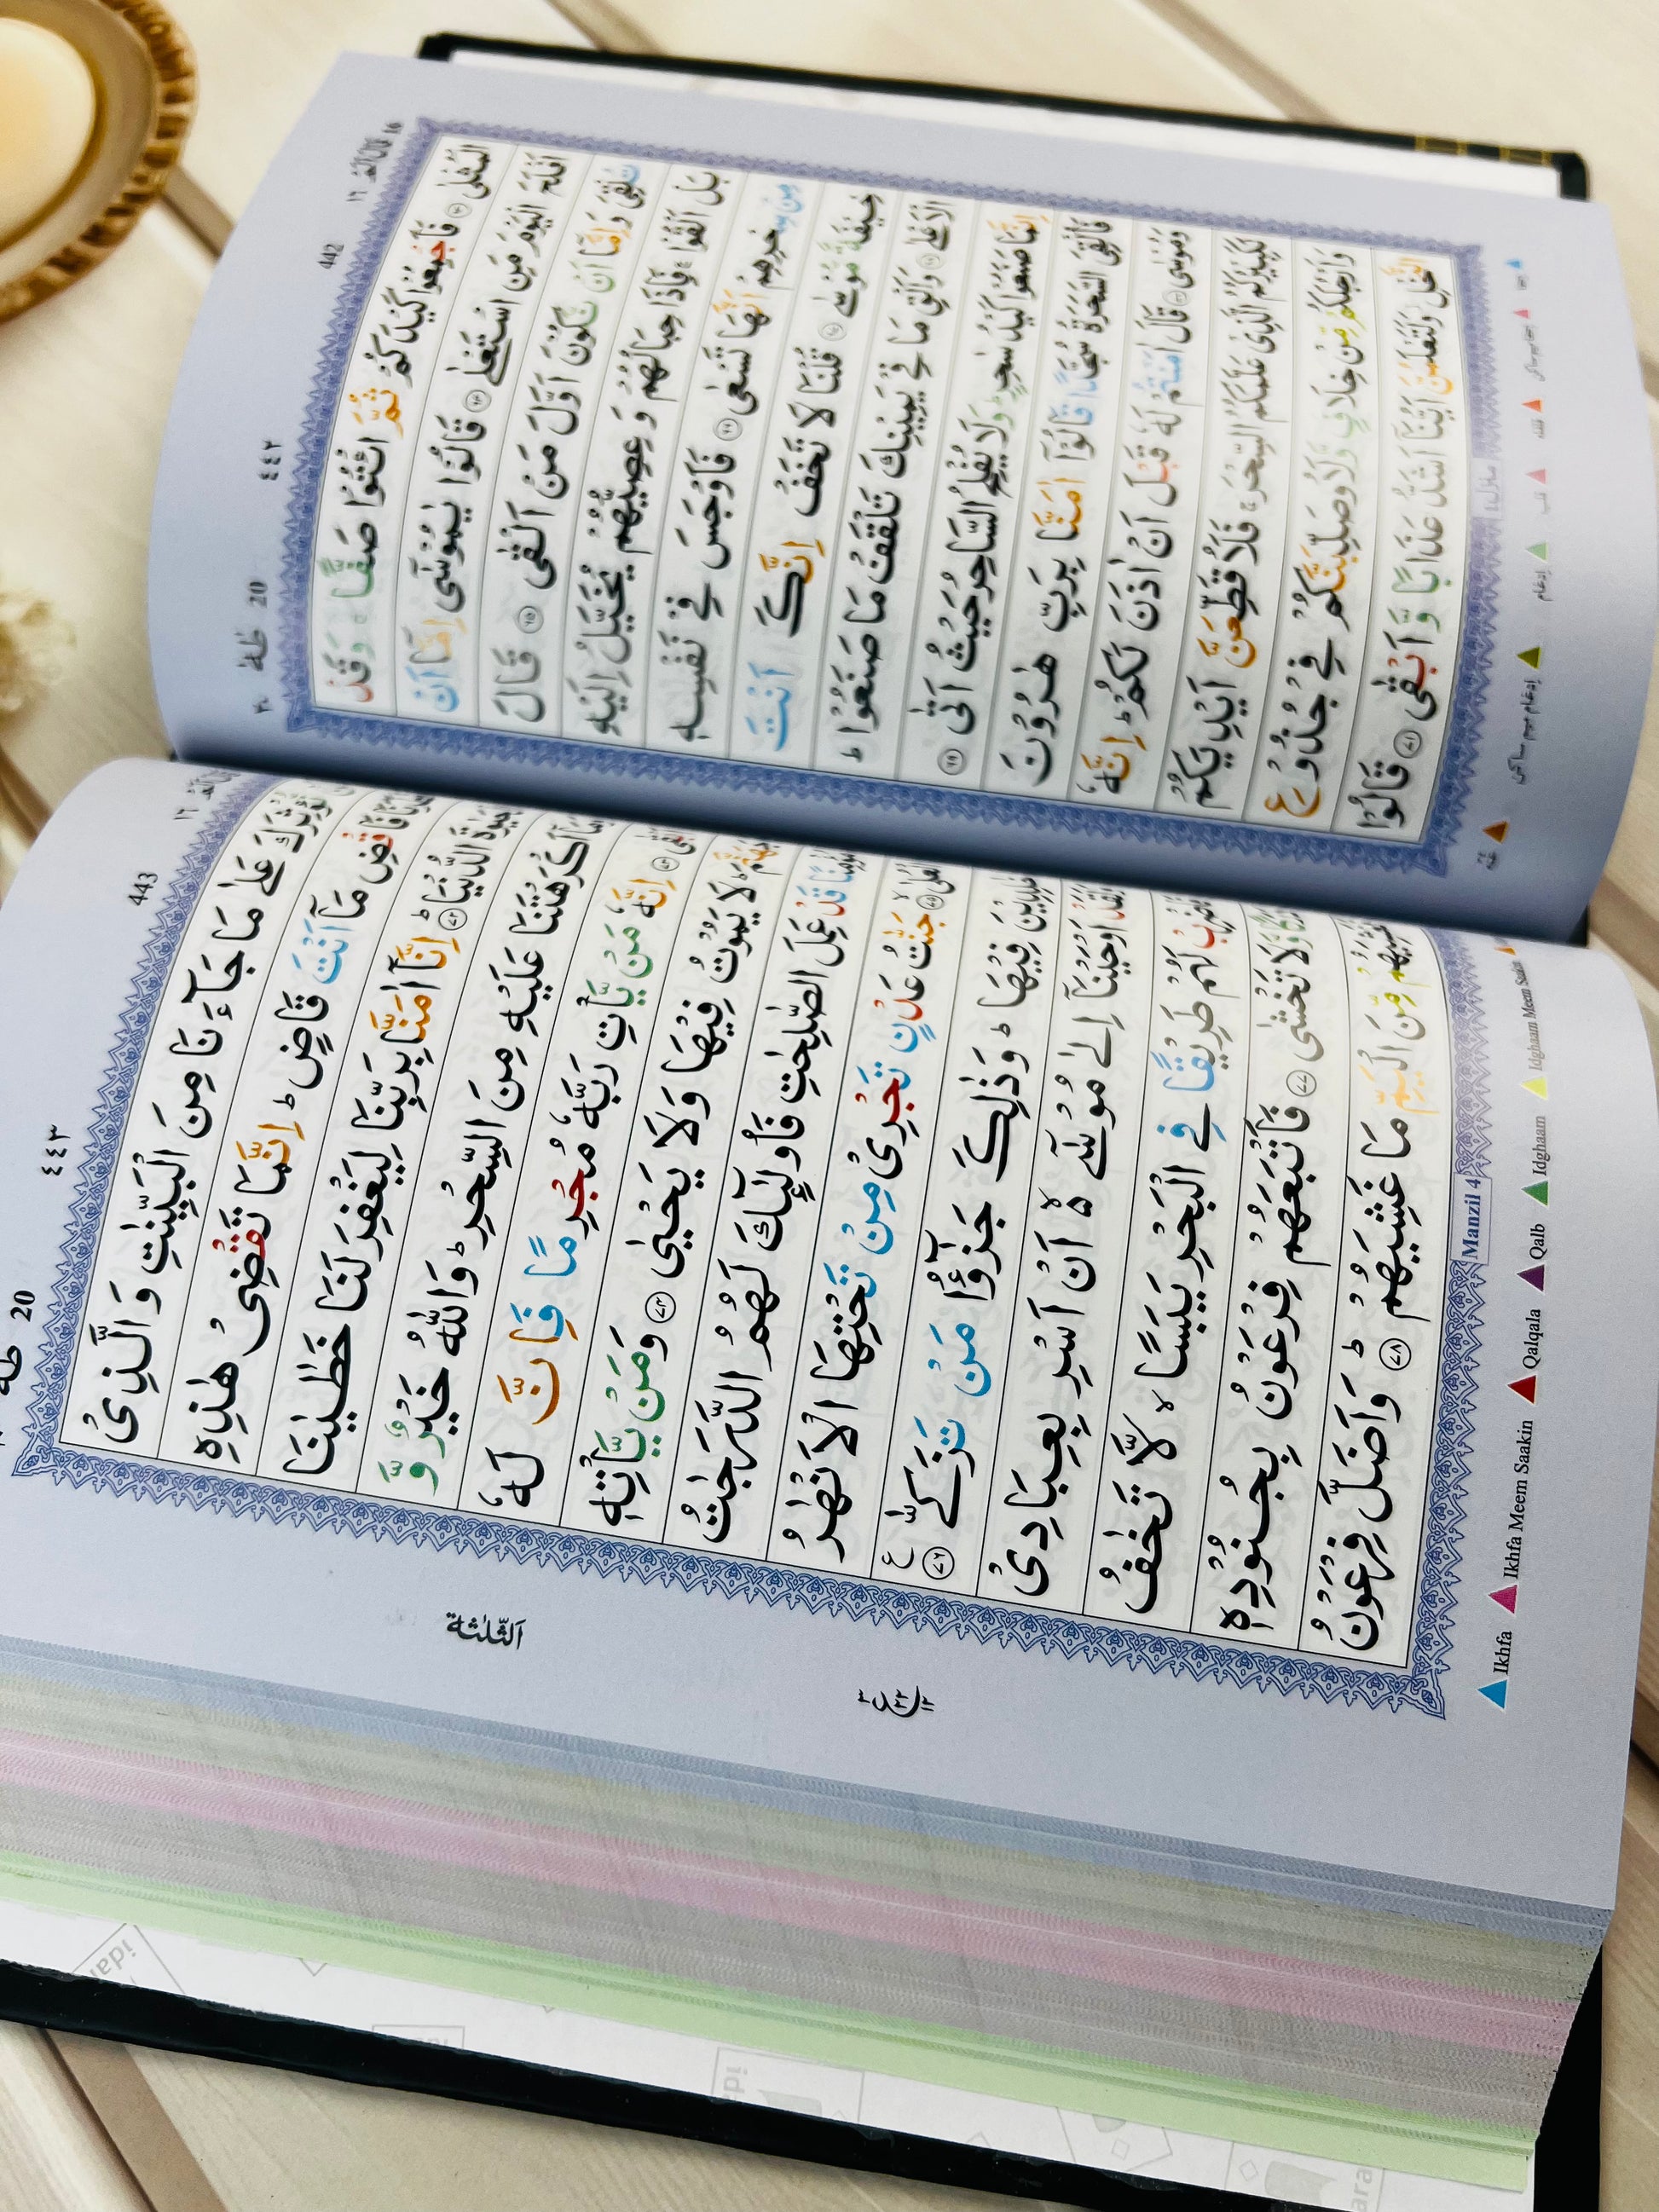 قَالَ اَلَمْ ١٦ 16
442
٤٤٢
20 طٰهٰ ٢٠
الْمُثْلٰى ﴿٦٣﴾ فَاَجْمِعُوْا كَيْدَكُمْ ثُمَّ ائْتُوْا صَفًّا ۚ وَقَدْ
اَفْلَحَ الْيَوْمَ مَنِ اسْتَعْلٰى ﴿٦٤﴾ قَالُوْا يٰمُوْسٰٓى اِمَّآ اَنْ
تُلْقِيَ وَاِمَّآ اَنْ نَّكُوْنَ اَوَّلَ مَنْ اَلْقٰى ﴿٦٥﴾ قَالَ
بَلْ اَلْقُوْا ۚ فَاِذَا حِبَالُهُمْ وَعِصِيُّهُمْ يُخَيَّلُ اِلَيْهِ
مِنْ سِحْرِهِمْ اَنَّهَا تَسْعٰى ﴿٦٦﴾ فَاَوْجَسَ فِيْ نَفْسِهٖ
خِيْفَةً مُّوْسٰى ﴿٦٧﴾ قُلْنَا لَا تَخَفْ اِنَّكَ اَنْتَ
الْاَعْلٰى ﴿٦٨﴾ وَاَلْقِ مَا فِيْ يَمِيْنِكَ تَلْقَفْ مَا صَنَعُوْا ؕ
اِنَّمَا صَنَعُوْا كَيْدُ سٰحِرٍ ؕ وَلَا يُفْلِحُ السَّاحِرُ حَيْثُ اَتٰى ﴿٦٩﴾
فَاُلْقِيَ السَّحَرَةُ سُجَّدًا قَالُوْٓا اٰمَنَّا بِرَبِّ هٰرُوْنَ
وَمُوْسٰى ﴿٧٠﴾ قَالَ اٰمَنْتُمْ لَهٗ قَبْلَ اَنْ اٰذَنَ لَكُمْ ؕ اِنَّهٗ
لَكَبِيْرُكُمُ الَّذِيْ عَلَّمَكُمُ السِّحْرَ ۚ فَلَاُقَطِّعَنَّ اَيْدِيَكُمْ
وَاَرْجُلَكُمْ مِّنْ خِلَافٍ وَّلَاُوصَلِّبَنَّكُمْ فِيْ جُذُوْعِ
النَّخْلِ وَلَتَعْلَمُنَّ اَيُّنَآ اَشَدُّ عَذَابًا وَّاَبْقٰى ﴿٧١﴾ قَالُوْا
443
٤٤٣
20 طٰهٰ
نُّؤْثِرَكَ عَلٰى مَا جَآءَنَا مِنَ الْبَيِّنٰتِ وَالَّذِيْ
فَاقْضِ مَآ اَنْتَ قَاضٍ ؕ اِنَّمَا تَقْضِيْ هٰذِهِ
الدُّنْيَا ؕ ﴿٧٢﴾ اِنَّآ اٰمَنَّا بِرَبِّنَا لِيَغْفِرَ لَنَا خَطٰيٰنَا
اَكْرَهْتَنَا عَلَيْهِ مِنَ السِّحْرِ ؕ وَاللّٰهُ خَيْرٌ وَّ
﴿٧٣﴾ اِنَّهٗ مَنْ يَّاْتِ رَبَّهٗ مُجْرِمًا فَاِنَّ لَهٗ
لَا يَمُوْتُ فِيْهَا وَلَا يَحْيٰى ﴿٧٤﴾ وَمَنْ يَّاْتِهٖ
قَدْ عَمِلَ الصّٰلِحٰتِ فَاُولٰٓئِكَ لَهُمُ الدَّرَجٰتُ
الْعُلٰى ﴿٧٥﴾ جَنّٰتُ عَدْنٍ تَجْرِيْ مِنْ تَحْتِهَا الْاَنْهٰرُ
خٰلِدِيْنَ فِيْهَا ؕ وَذٰلِكَ جَزٰٓؤُا مَنْ تَزَكّٰى ﴿٧٦﴾ ع
اَوْحَيْنَآ اِلٰى مُوْسٰٓى ۙ اَنْ اَسْرِ بِعِبَادِيْ
لَهُمْ طَرِيْقًا فِي الْبَحْرِ يَبَسًا ۙ لَّا تَخٰفُ
وَّلَا تَخْشٰى ﴿٧٧﴾ فَاَتْبَعَهُمْ فِرْعَوْنُ بِجُنُوْدِهٖ
مِّنَ الْيَمِّ مَا غَشِيَهُمْ ؕ ﴿٧٨﴾ وَاَضَلَّ فِرْعَوْنُ
اَلثَّلٰثَة
Manzil 4
Ikhfa Ikhfa Meem Saakin Qalqala Qalb Idghaam Idghaam Meem Saakin